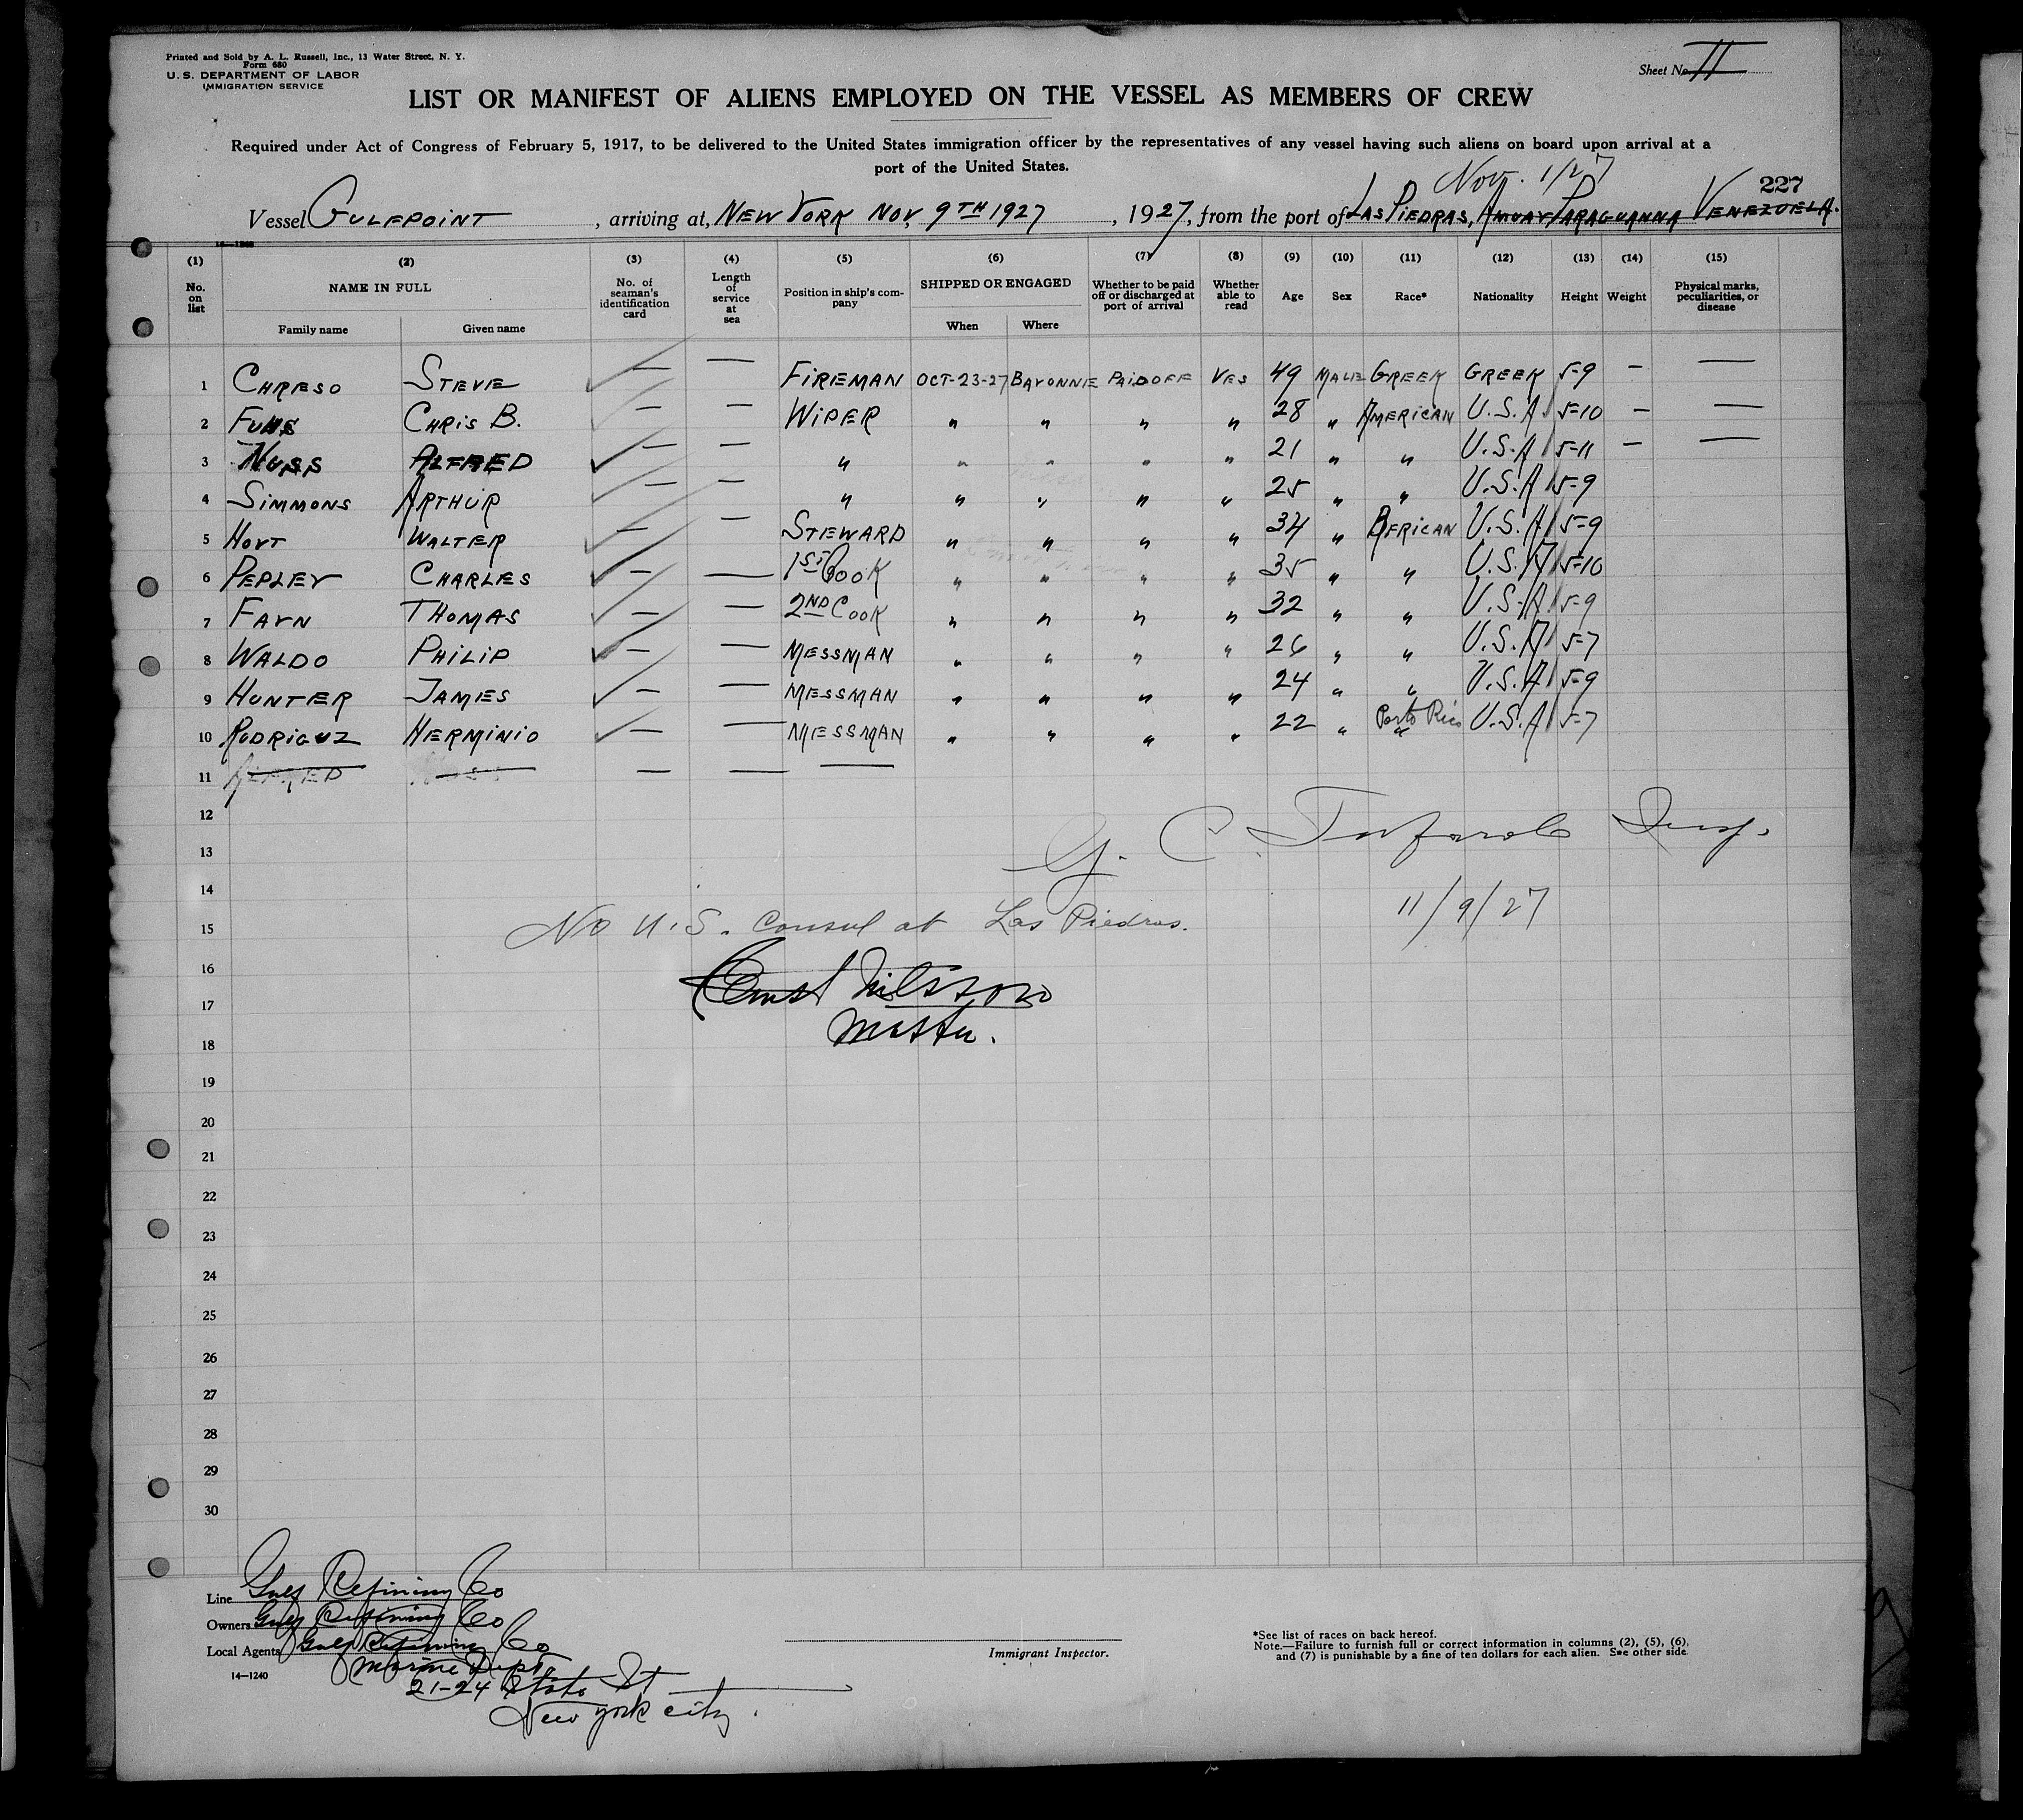 Printed and Sold by A. L. Russell, Inc., 13 Water Street, N. Y.
Form 680
U. S. DEPARTMENT OF LABOR
IMMIGRATION SERVICE
Sheet No. II
LIST OR MANIFEST OF ALIENS EMPLOYED ON THE VESSEL AS MEMBERS OF CREW
Required under Act of Congress of February 5, 1917, to be delivered to the United States immigration officer by the representatives of any vessel having such aliens on board upon arrival at a
port of the United States.
Nov. 1/27
227
Vessel GULFPOINT, arriving at, NEW YORK NOV, 9TH 1927, 1927, from the port of LAS PIEDRAS, AMUAY PARAGUANNA VENEZUELA.
(1) (2) (3) (4) (5) (6) (7) (8) (9) (10) (11) (12) (13) (14) (15)
No. on list NAME IN FULL No. of seaman's identification card Length of service at sea Position in ship's company SHIPPED OR ENGAGED Whether to be paid off or discharged at port of arrival Whether able to read Age Sex Race* Nationality Height Weight Physical marks, peculiarities, or disease
Family name Given name When Where
1 CHRESO STEVE — — FIREMAN OCT-23-27 BAYONNE PAID OFF YES 49 MALE GREEK GREEK 5-9 — —
2 CHRIS B. — — WIPER " " " " 28 " AMERICAN U.S.A 5-10 — —
3 NUSS ALFRED — — " " " " " 21 " " U.S.A 5-11 — —
4 SIMMONS ARTHUR — — " " " " " 25 " " U.S.A 5-9
5 HOYT WALTER — — STEWARD " " " " 34 " AFRICAN U.S.A 5-9
6 PEPLEY CHARLES — — 1ST COOK " " " " 35 " " U.S.A 5-10
7 FAYN THOMAS — — 2ND COOK " " " " 32 " " U.S.A 5-9
8 WALDO PHILIP — — MESSMAN " " " " 26 " " U.S.A 5-7
9 HUNTER JAMES — — MESSMAN " " " " 24 " " U.S.A 5-9
10 RODRIGUZ HERMINIO — — MESSMAN " " " " 22 " Porto Rico " U.S.A 5-7
11 — — — — —
12
13 Insp.
14 11/9/27
15 No U.S. Consul at Las Piedras.
16 Ernst Nilsson
17 Master.
18
19
20
21
22
23
24
25
26
27
28
29
30
Line Gulf Refining Co
Owners Gulf Refining Co
Local Agents Gulf Refining Co
Marine Dept.
21-24 State St
New York City.
14—1240
Immigrant Inspector.
*See list of races on back hereof.
Note.—Failure to furnish full or correct information in columns (2), (5), (6),
and (7) is punishable by a fine of ten dollars for each alien. See other side.